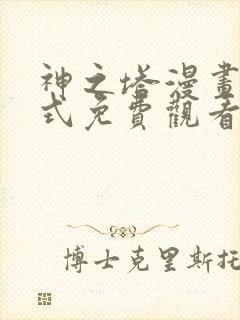 神之塔漫畫
式免費觀看
博士克里斯托